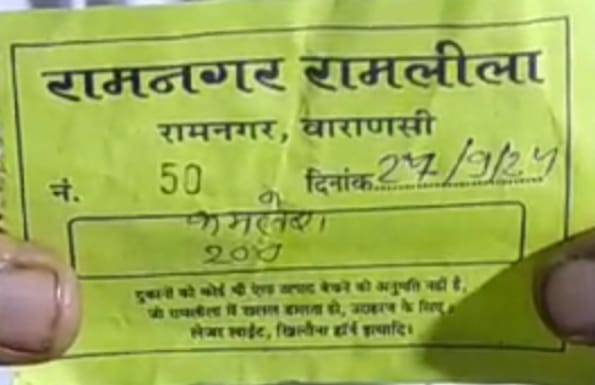 रामनगर रामलीला
रामनगर, वाराणसी
नं. 50 दिनांक 27/9/24
200
दुकानों को कोई भी ऐसा उत्पाद बेचने की अनुमति नहीं है,
जो रामलीला में खलल डालता हो, उदाहरण के लिए
लेजर लाईट, खिलौना हॉर्न इत्यादि।